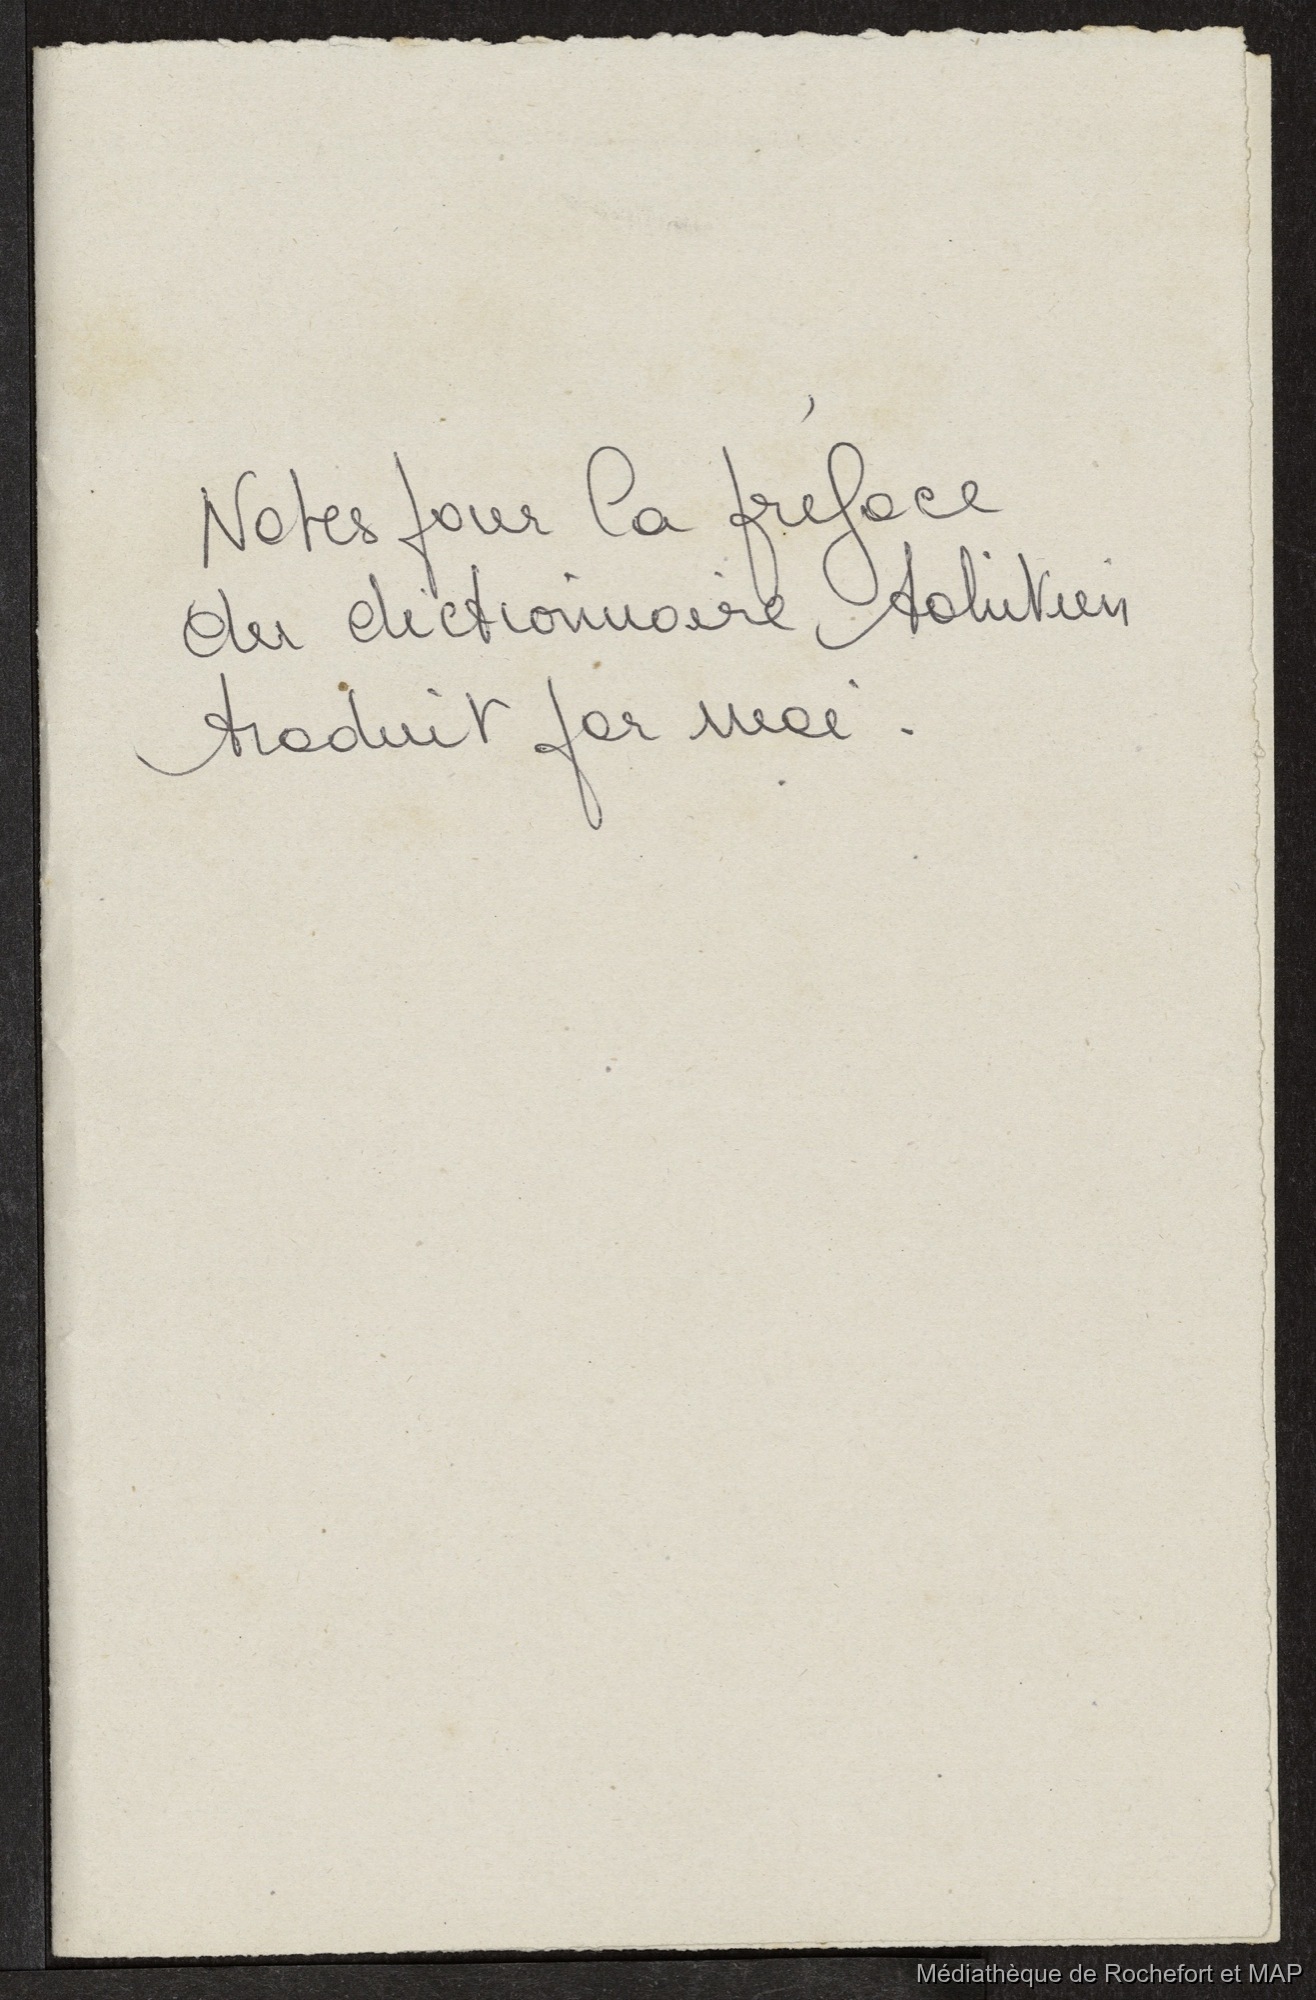 Notes pour la préface
du dictionnaire tahitien
traduit par moi.
Médiathèque de Rochefort et MAP